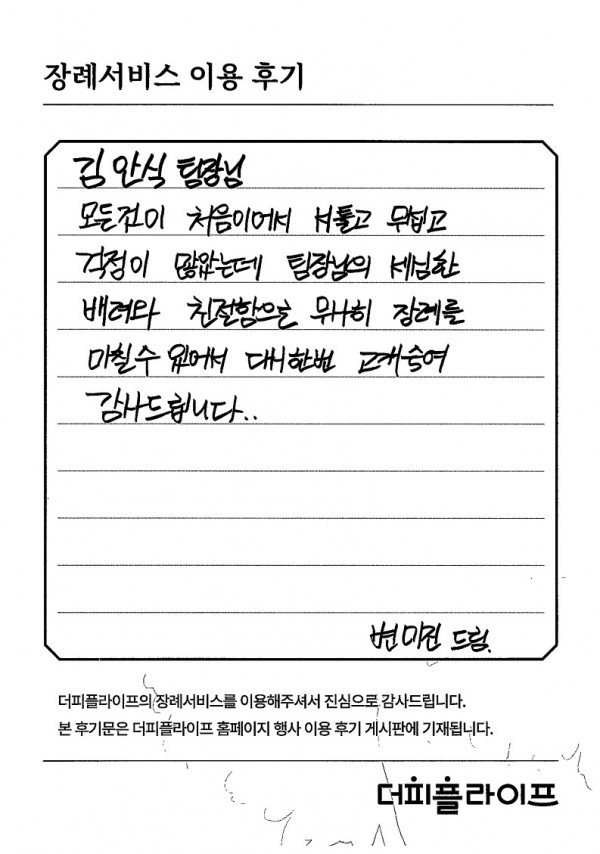 장례서비스 이용 후기
김안식 팀장님
모든것이 처음이어서 서툴고 무섭고
걱정이 많았는데 팀장님의 세심한
배려와 친절함으로 무사히 장례를
마칠수 있어서 다시한번 고개숙여
감사드립니다..
변미진 드림.
더피플라이프의 장례서비스를 이용해주셔서 진심으로 감사드립니다.
본 후기문은 더피플라이프 홈페이지 행사 이용 후기 게시판에 기재됩니다.
더피플라이프